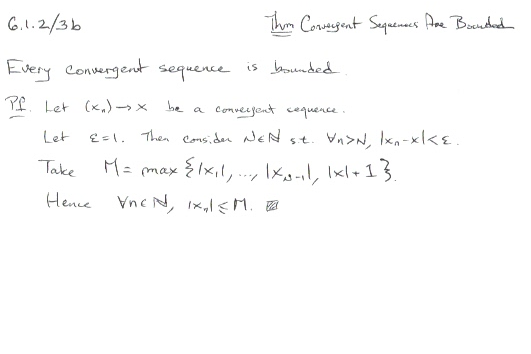 6.1.2/3b Thm Convergent Sequences Are Bounded
Every convergent sequence is bounded.
Pf. Let (xₙ)→x be a convergent sequence.
Let ε=1. Then consider N∈ℕ s.t. ∀n>N, |xₙ-x|<ε.
Take M= max {|x₁|, ..., |x_{N-1}|, |x|+1}.
Hence ∀n∈ℕ, |xₙ|≤M. ▨